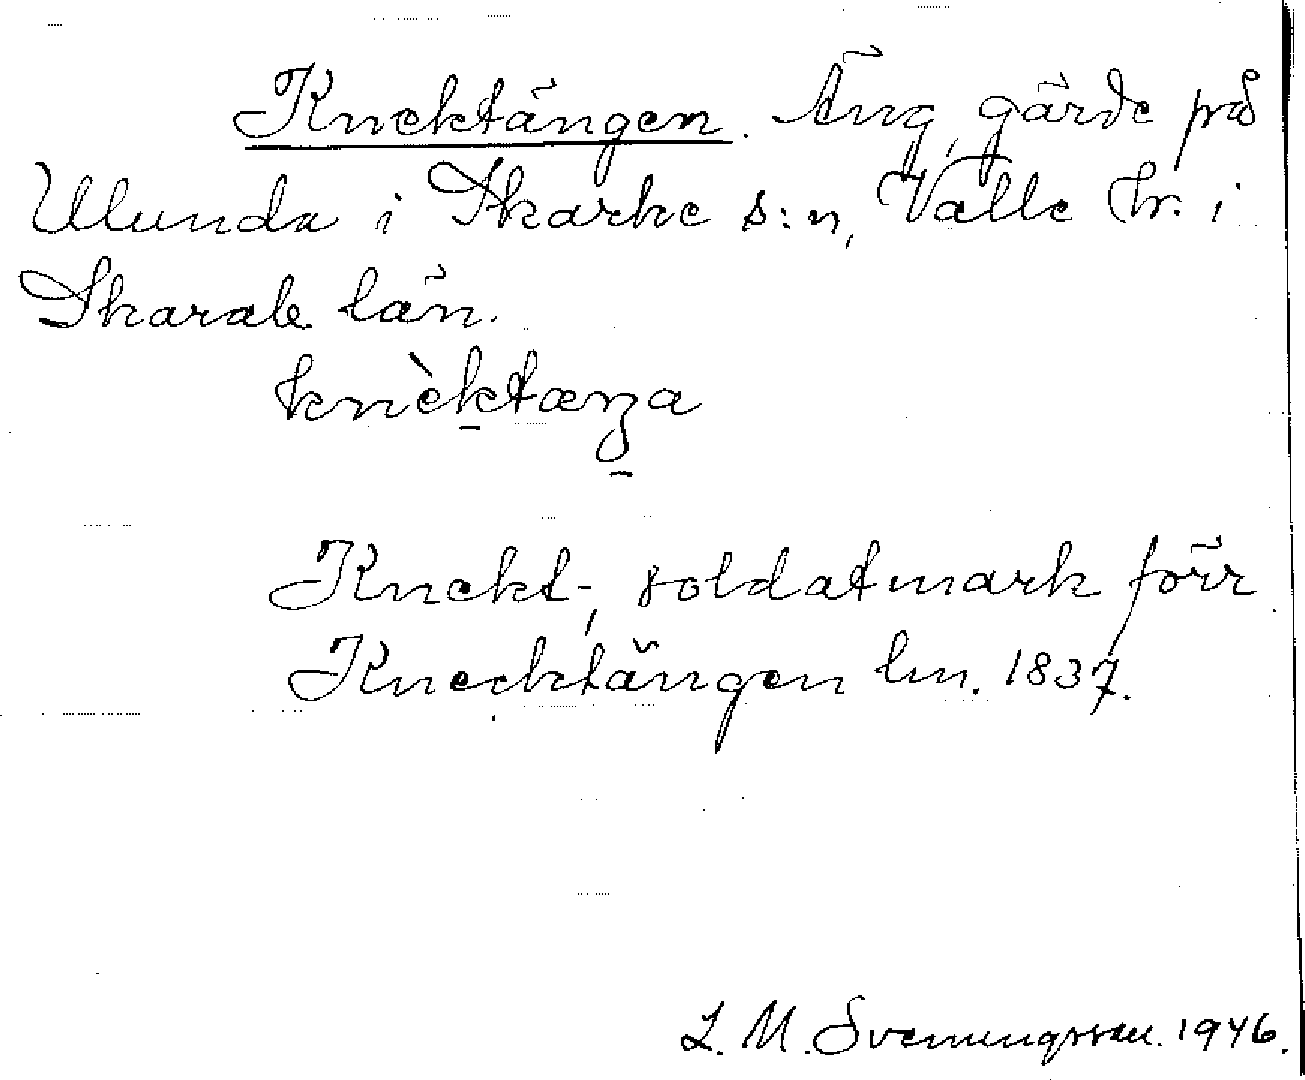 Knektängen. Äng, gärde på
Ulunda i Skarke s:n, Valle hr. i
Skarab. län.
knèktæŋa
Knekt-, soldatmark förr
Knecktängen lm. 1837.
L. M. Svenungsson. 1946.